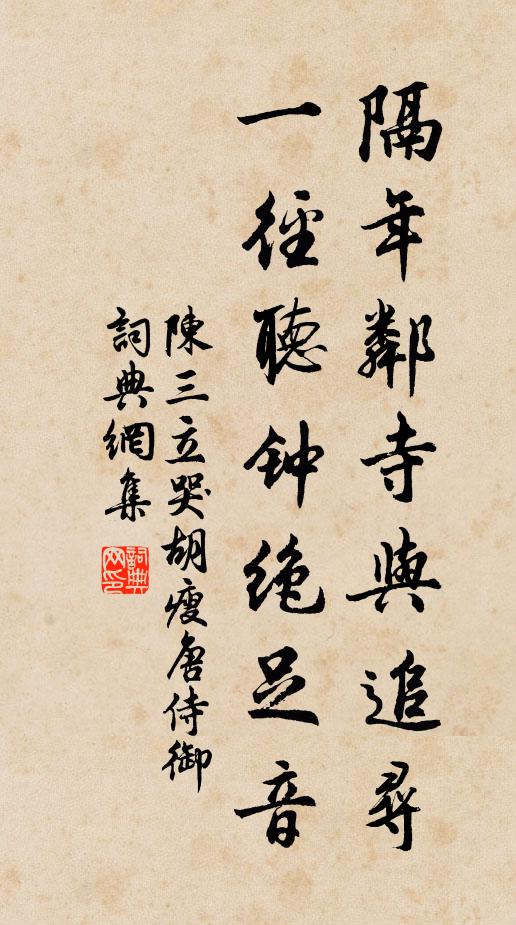 隔年鄰寺與追尋
一徑聽钟絶足音
陳三立哭胡瘦唐侍御
詞典網集
詞典網印